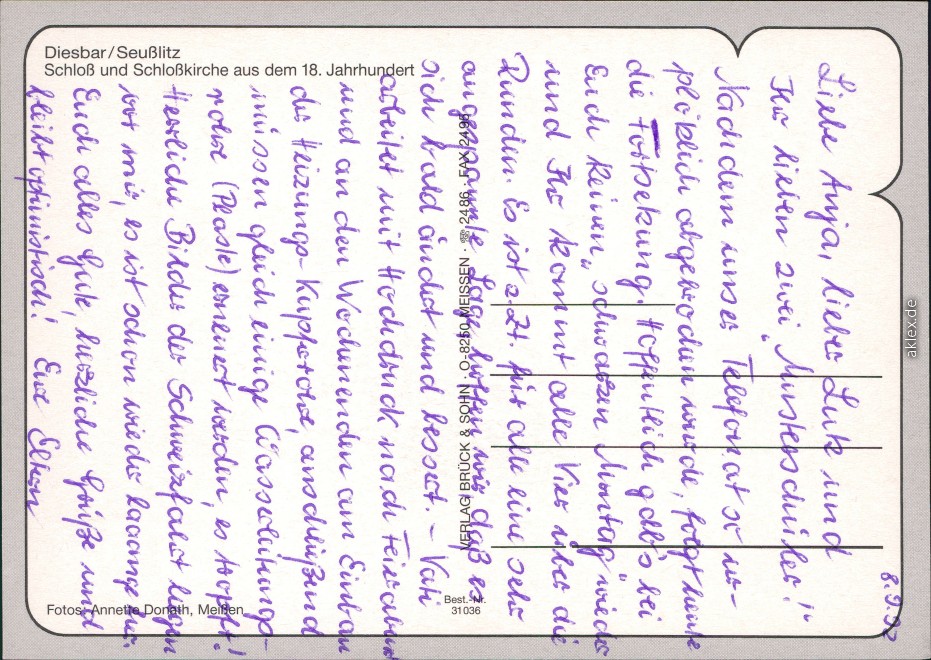 Diesbar/Seußlitz
Schloß und Schloßkirche aus dem 18. Jahrhundert
8.9.92
Liebe Anja, lieber Lutz und
Ihr lieben zwei „Musterschüler!"
Nachdem unser Telefonat so
plötzlich abgebrochen wurde, folgt heute
die Fortsetzung. Hoffentlich g. gibt's bei
Euch keinen „schwarzen Montag" wieder
und Ihr kommt alle Vier über die
Runden. Es ist z. Zt. für alle eine sehr
angespannte Lage, hoffen wir daß es
sich bald ändert und bessert. – Vati
arbeitet mit Hochdruck nach Feierabend
und an den Wochenenden am Einbau
der Heizungs-Kupferrohre, anschließend
müssen gleich einige Wasserleitungs-
rohre (Plaste) erneuert werden, es tropft!
Herrliche Bilder der Schweizfahrt liegen
vor mir, es ist schon wieder lange her.
Euch alles Gute, herzliche Grüße und
bleibt optimistisch! Eure Eltern
VERLAG BRÜCK & SOHN · O-8250 MEISSEN · ☏ 2486 · FAX 2496
Fotos: Annette Donath, Meißen
Best.-Nr.
31036
aklex.de